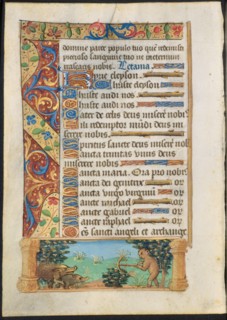 domine parce populo tuo quē redemisti
precioso sanguine tuo ne in eternum
irascaris nobis. Letania.
Kyrie eleyson.
Christe eleyson
Christe audi nos
Christe audi nos
Pater de celis deus miserē nobis
Fili redemptor mūdi deus mi
serere nobis.
Spiritus sancte deus miserē nob
Sancta trinitas vnus deus
miserere nobis
Sancta maria. Ora pro nobis
Sancta dei genitrix or
Sancta virgo virginū or
Sancte michael or
Sancte gabriel or
Sancte raphael or
Oēs sancti angeli et archange